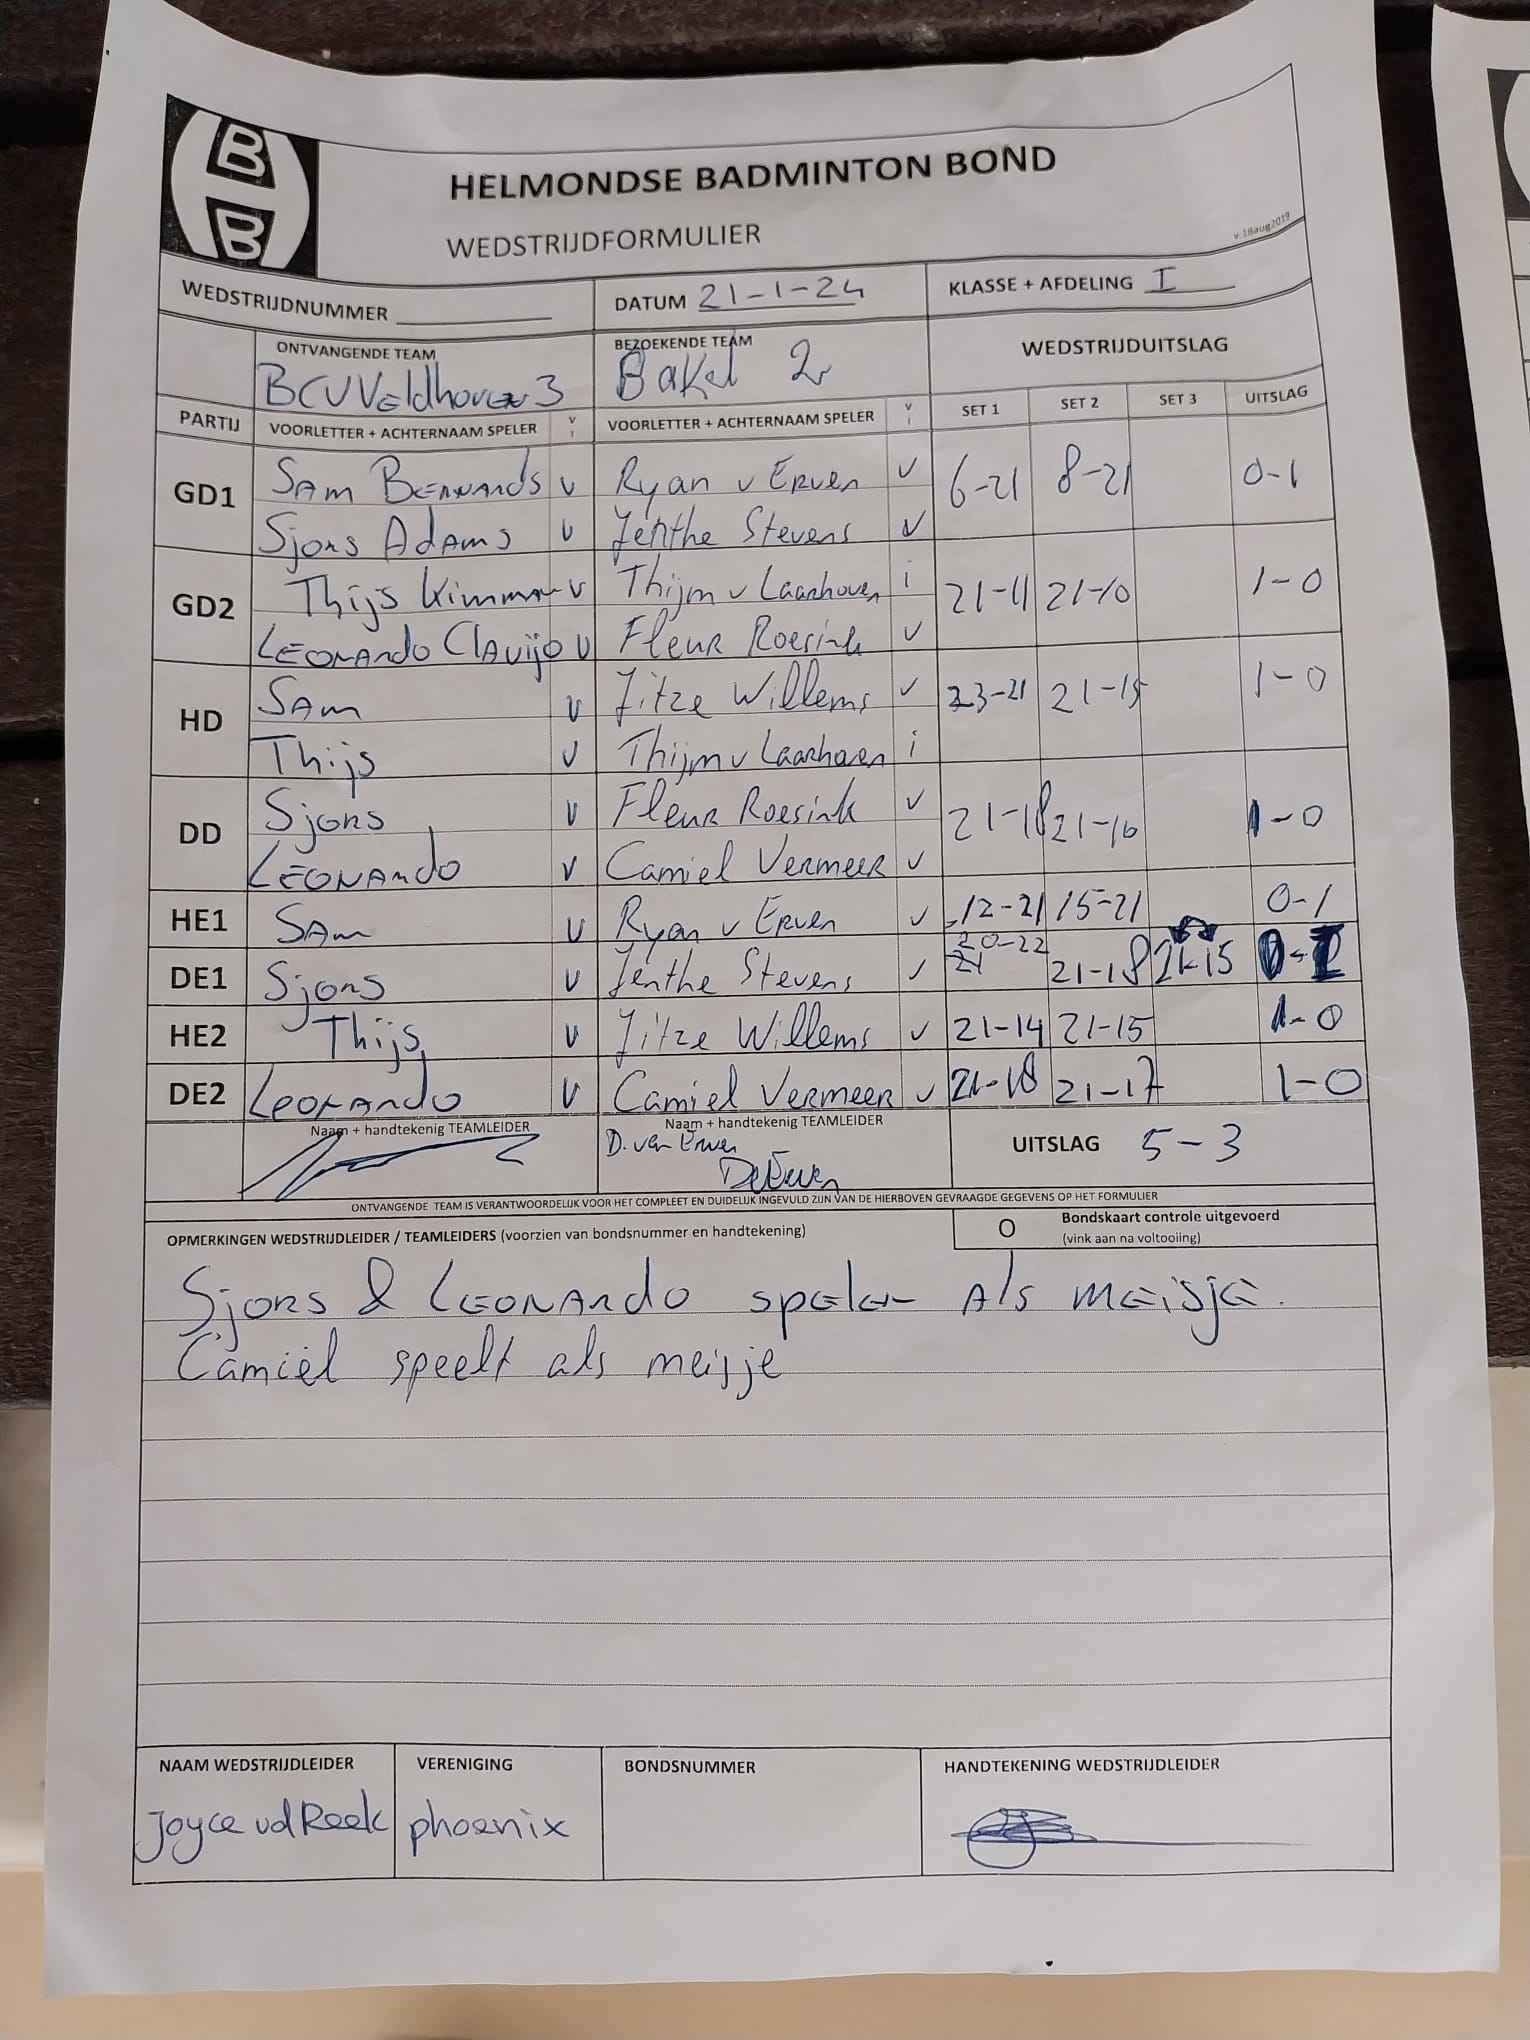 B
B
HELMONDSE BADMINTON BOND
WEDSTRIJDFORMULIER
v.18aug2019
WEDSTRIJDNUMMER
DATUM 21-1-24
KLASSE + AFDELING I
ONTVANGENDE TEAM
BCVVeldhoven 3
BEZOEKENDE TEAM
Bakel 2
WEDSTRIJDUITSLAG
PARTIJ VOORLETTER + ACHTERNAAM SPELER V I VOORLETTER + ACHTERNAAM SPELER V I SET 1 SET 2 SET 3 UITSLAG
GD1 Sam Bernards v Ryan v Erven v 6-21 8-21 0-1
Sjors Adams v Jenthe Stevens v
GD2 Thijs v Thijm v Laarhoven i 21-11 21-10 1-0
Leonardo Clavijo v Fleur Roesink v
HD Sam v Jitze Willems v 23-21 21-15 1-0
Thijs v Thijm v Laarhoven i
DD Sjors v Fleur Roesink v 21-18 21-16 1-0
Leonardo v Camiel Vermeer v
HE1 Sam v Ryan v Erven v 12-21 15-21 0-1
DE1 Sjors v Jenthe Stevens v 20-22 21-18 21-15 0-1
21
HE2 Thijs v Jitze Willems v 21-14 21-15 1-0
DE2 Leonardo v Camiel Vermeer v 21-18 21-17 1-0
Naam + handtekenig TEAMLEIDER
Naam + handtekenig TEAMLEIDER
D. van Erven
UITSLAG 5-3
ONTVANGENDE TEAM IS VERANTWOORDELIJK VOOR HET COMPLEET EN DUIDELIJK INGEVULD ZIJN VAN DE HIERBOVEN GEVRAAGDE GEGEVENS OP HET FORMULIER
OPMERKINGEN WEDSTRIJDLEIDER / TEAMLEIDERS (voorzien van bondsnummer en handtekening)
O Bondskaart controle uitgevoerd
(vink aan na voltooiing)
Sjors & Leonardo spelen als meisje.
Camiël speelt als meisje
NAAM WEDSTRIJDLEIDER
Joyce vd Reek
VERENIGING
phoenix
BONDSNUMMER
HANDTEKENING WEDSTRIJDLEIDER